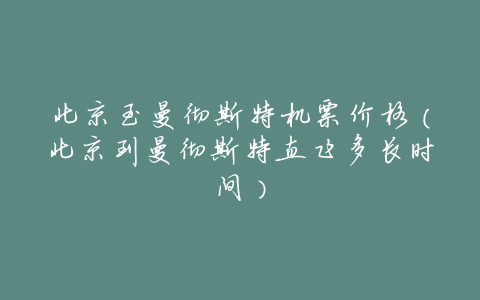 北京至曼彻斯特机票价格（
北京到曼彻斯特直飞多长时
间）